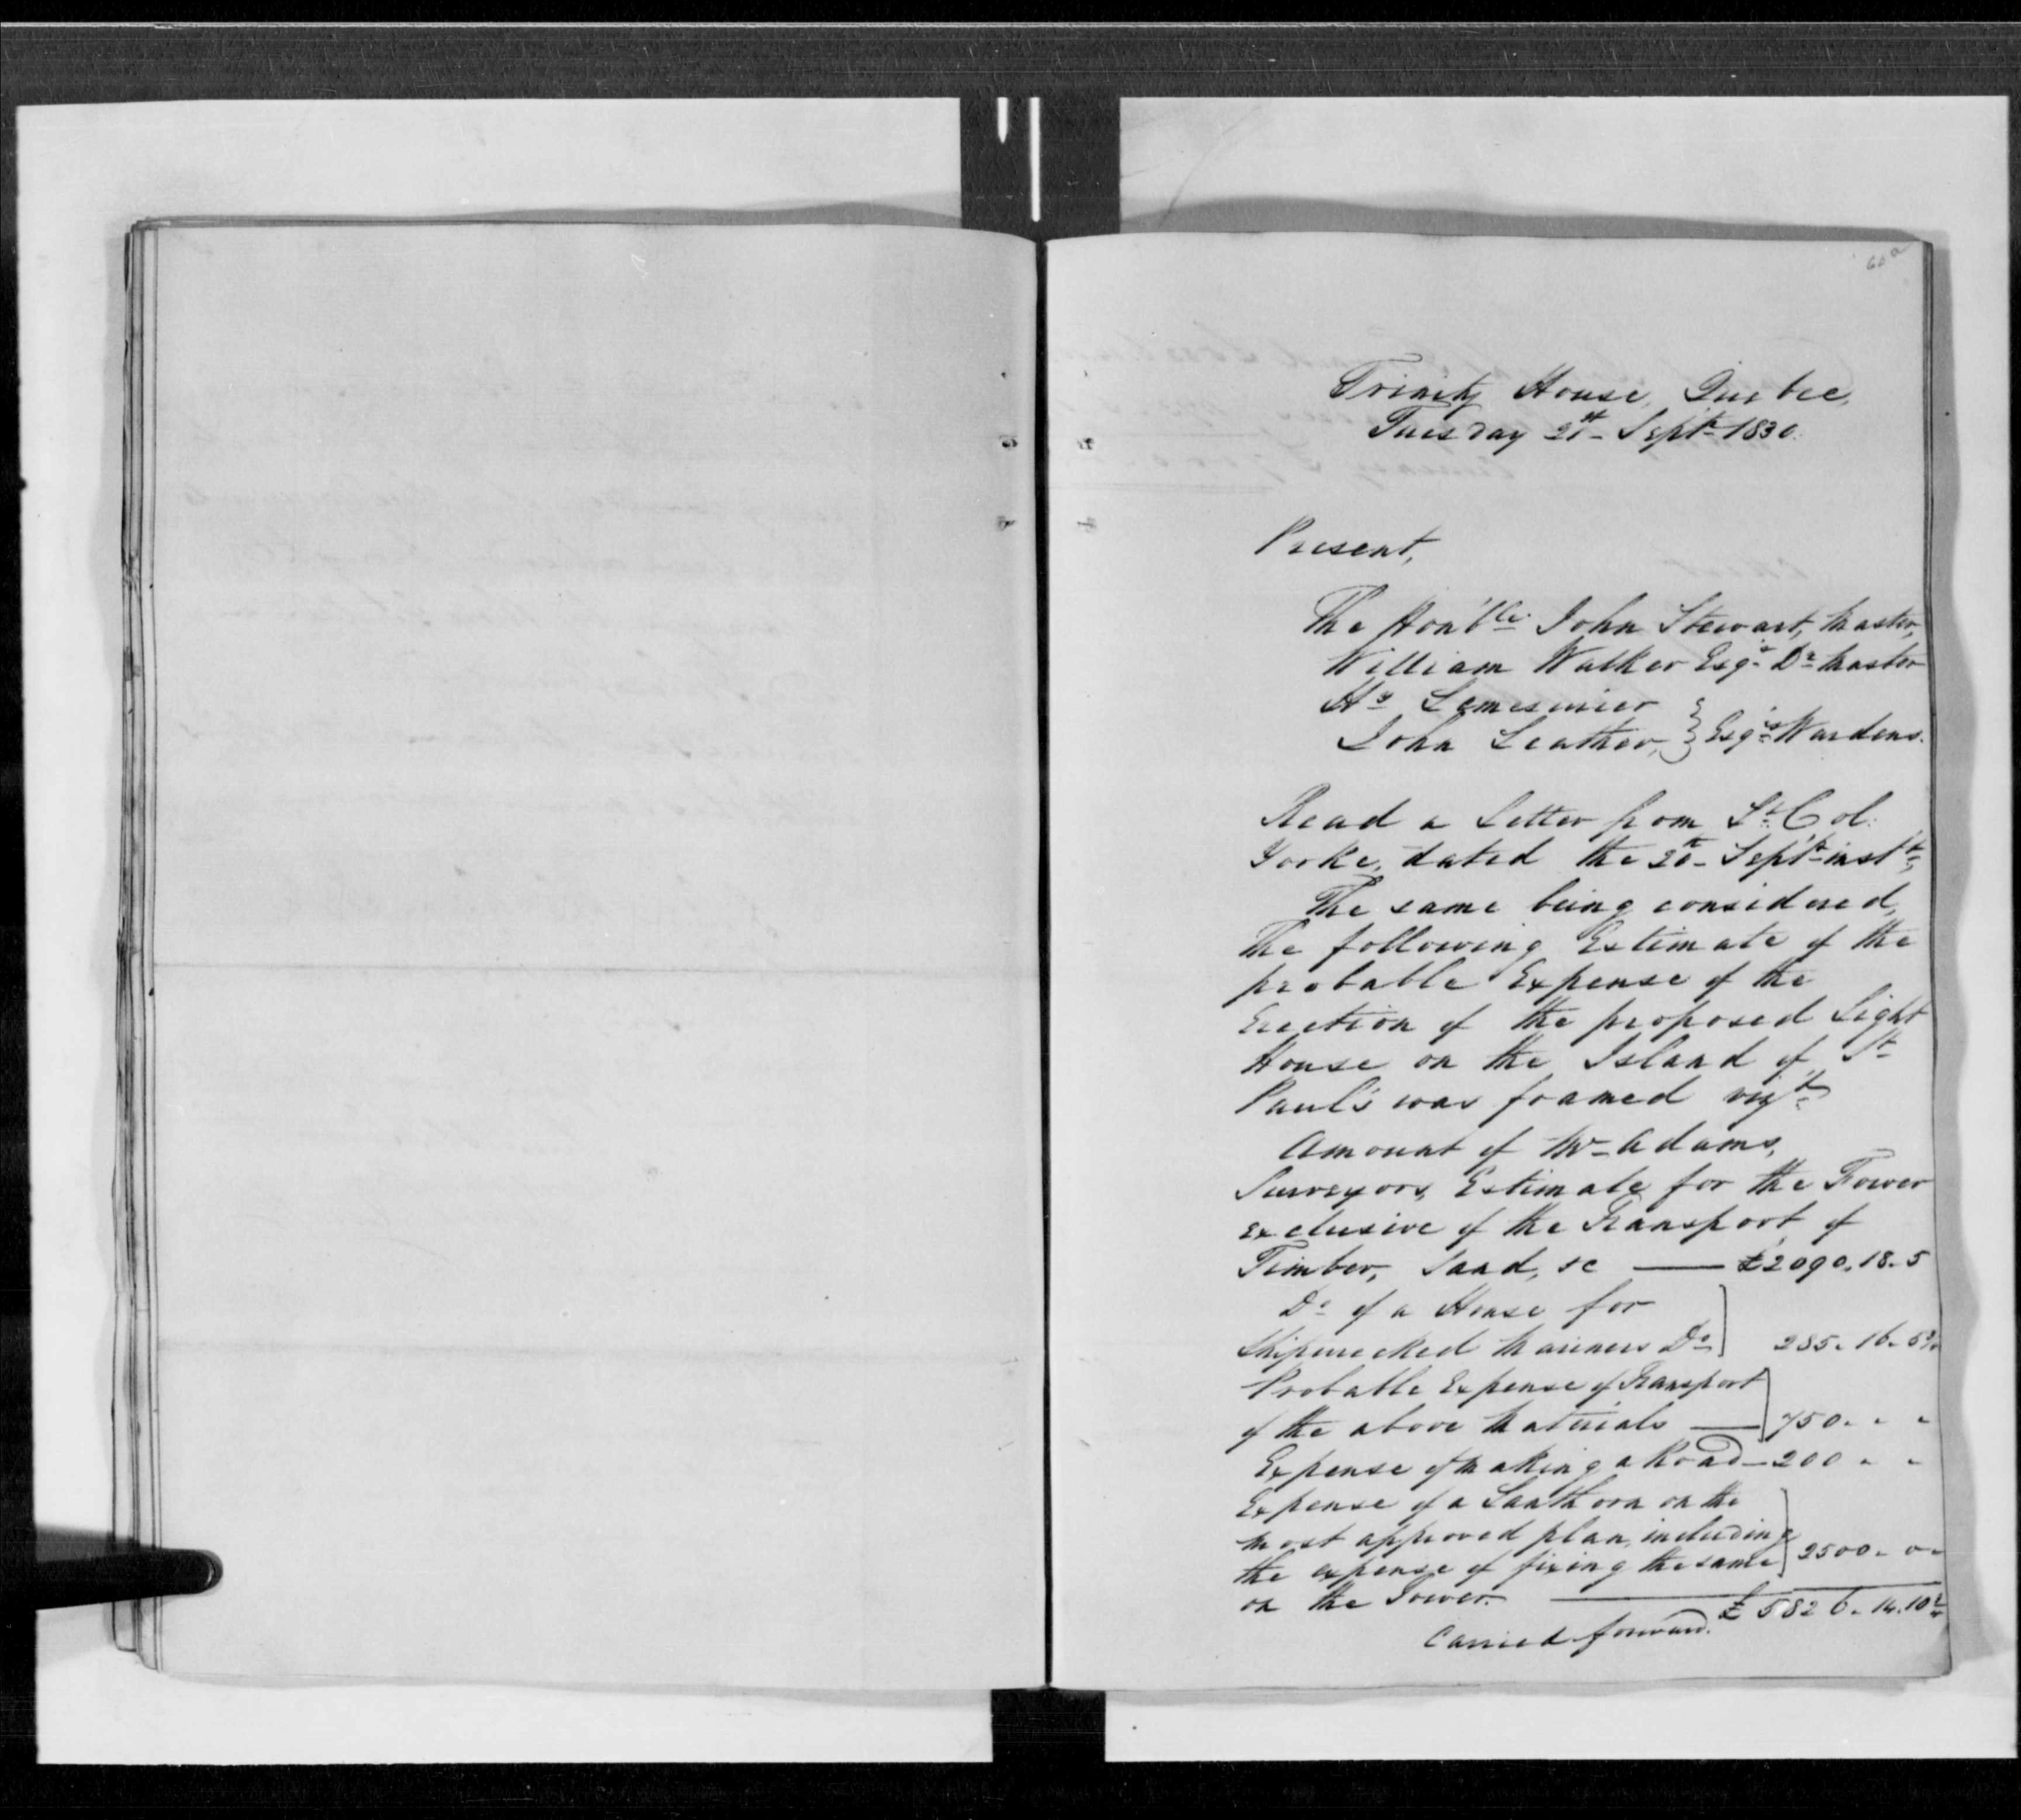 60a
Trinity House, Quebec,
Tuesday 21st Septr 1830.
Present,
The Hon'ble John Stewart, Master,
William Walker Esqr Dy Master
Hy Lemesurier
John Leather, } Esqrs Wardens.
Read a Letter from Lt Col:
Yorke, dated the 20th Septr inst,
The same being considered,
The following Estimate of the
probable Expense of the
Erection of the proposed Light
House on the Island of St
Paul's was framed vizt
Amount of Mr Adams,
Surveyors, Estimate for the Tower
exclusive of the Transport of
Timber, Sand, &c — £2090.18.5
Do of a House for
Shipwrecked Mariners Do ] 285. 16. 5½
Probable Expense of Transport
of the above Materials — ] 750. " "
Expense of making a Road — 200 " "
Expense of a Lanthorn on the
most approved plan, including
the expense of fixing the same ] 2500. 0.
on the Tower. — £ 5826. 14. 10½
Carried forward.